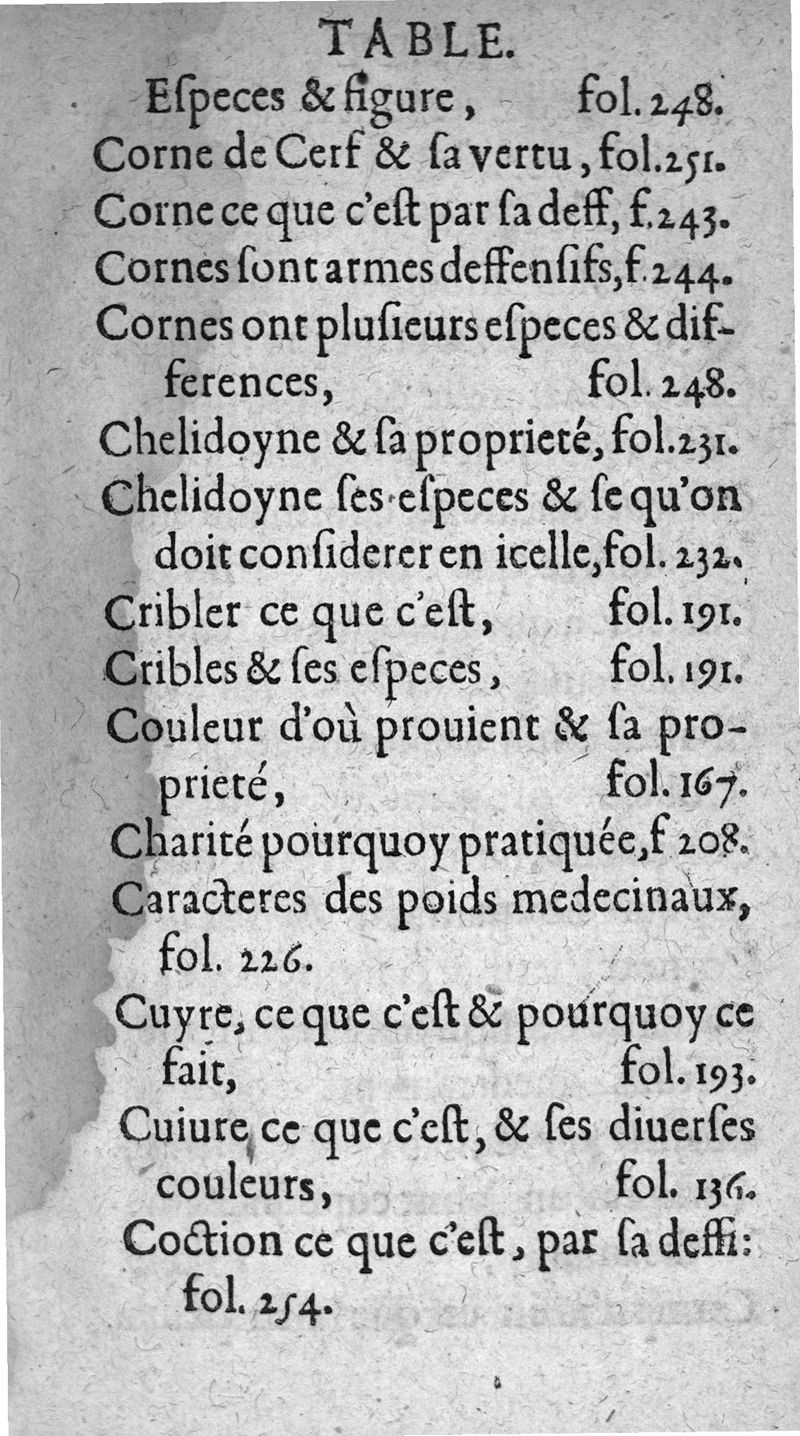 TABLE.
Eſpeces & figure, fol. 248.
Corne de Cerf & ſa vertu, fol. 251.
Corne ce que c'eſt par ſa deff, f. 243.
Cornes ſont armes deffenſifs, f. 244.
Cornes ont pluſieurs eſpeces & dif-
ferences, fol. 248.
Chelidoyne & ſa proprieté, fol. 231.
Chelidoyne ſes eſpeces & ſe qu'on
doit conſiderer en icelle, fol. 232.
Cribler ce que c'eſt, fol. 191.
Cribles & ſes eſpeces, fol. 191.
Couleur d'où prouient & ſa pro-
prieté, fol. 167.
Charité pourquoy pratiquée, f 208.
Caracteres des poids medecinaux,
fol. 226.
Cuyre, ce que c'eſt & pourquoy ce
fait, fol. 193.
Cuiure ce que c'eſt, & ſes diuerſes
couleurs, fol. 136.
Coction ce que c'eſt, par ſa deffi:
fol. 254.